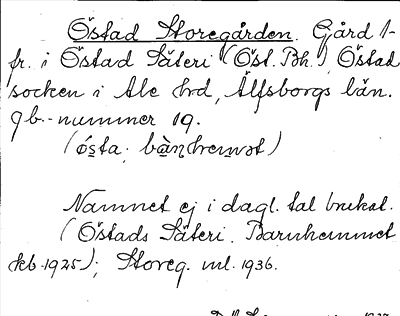 Östad Storegården. Gård 1-
fr. i Östad Säteri (Öst. Bh.) Östad
socken i Ale hd, Älfsborgs län.
Jb.-nummer 19.
(ósta; bàṇhemət)
Namnet ej i dagl. tal brukat.
(Östads Säteri. Barnhemmet
kb. 1925); Storeg. ml. 1936.